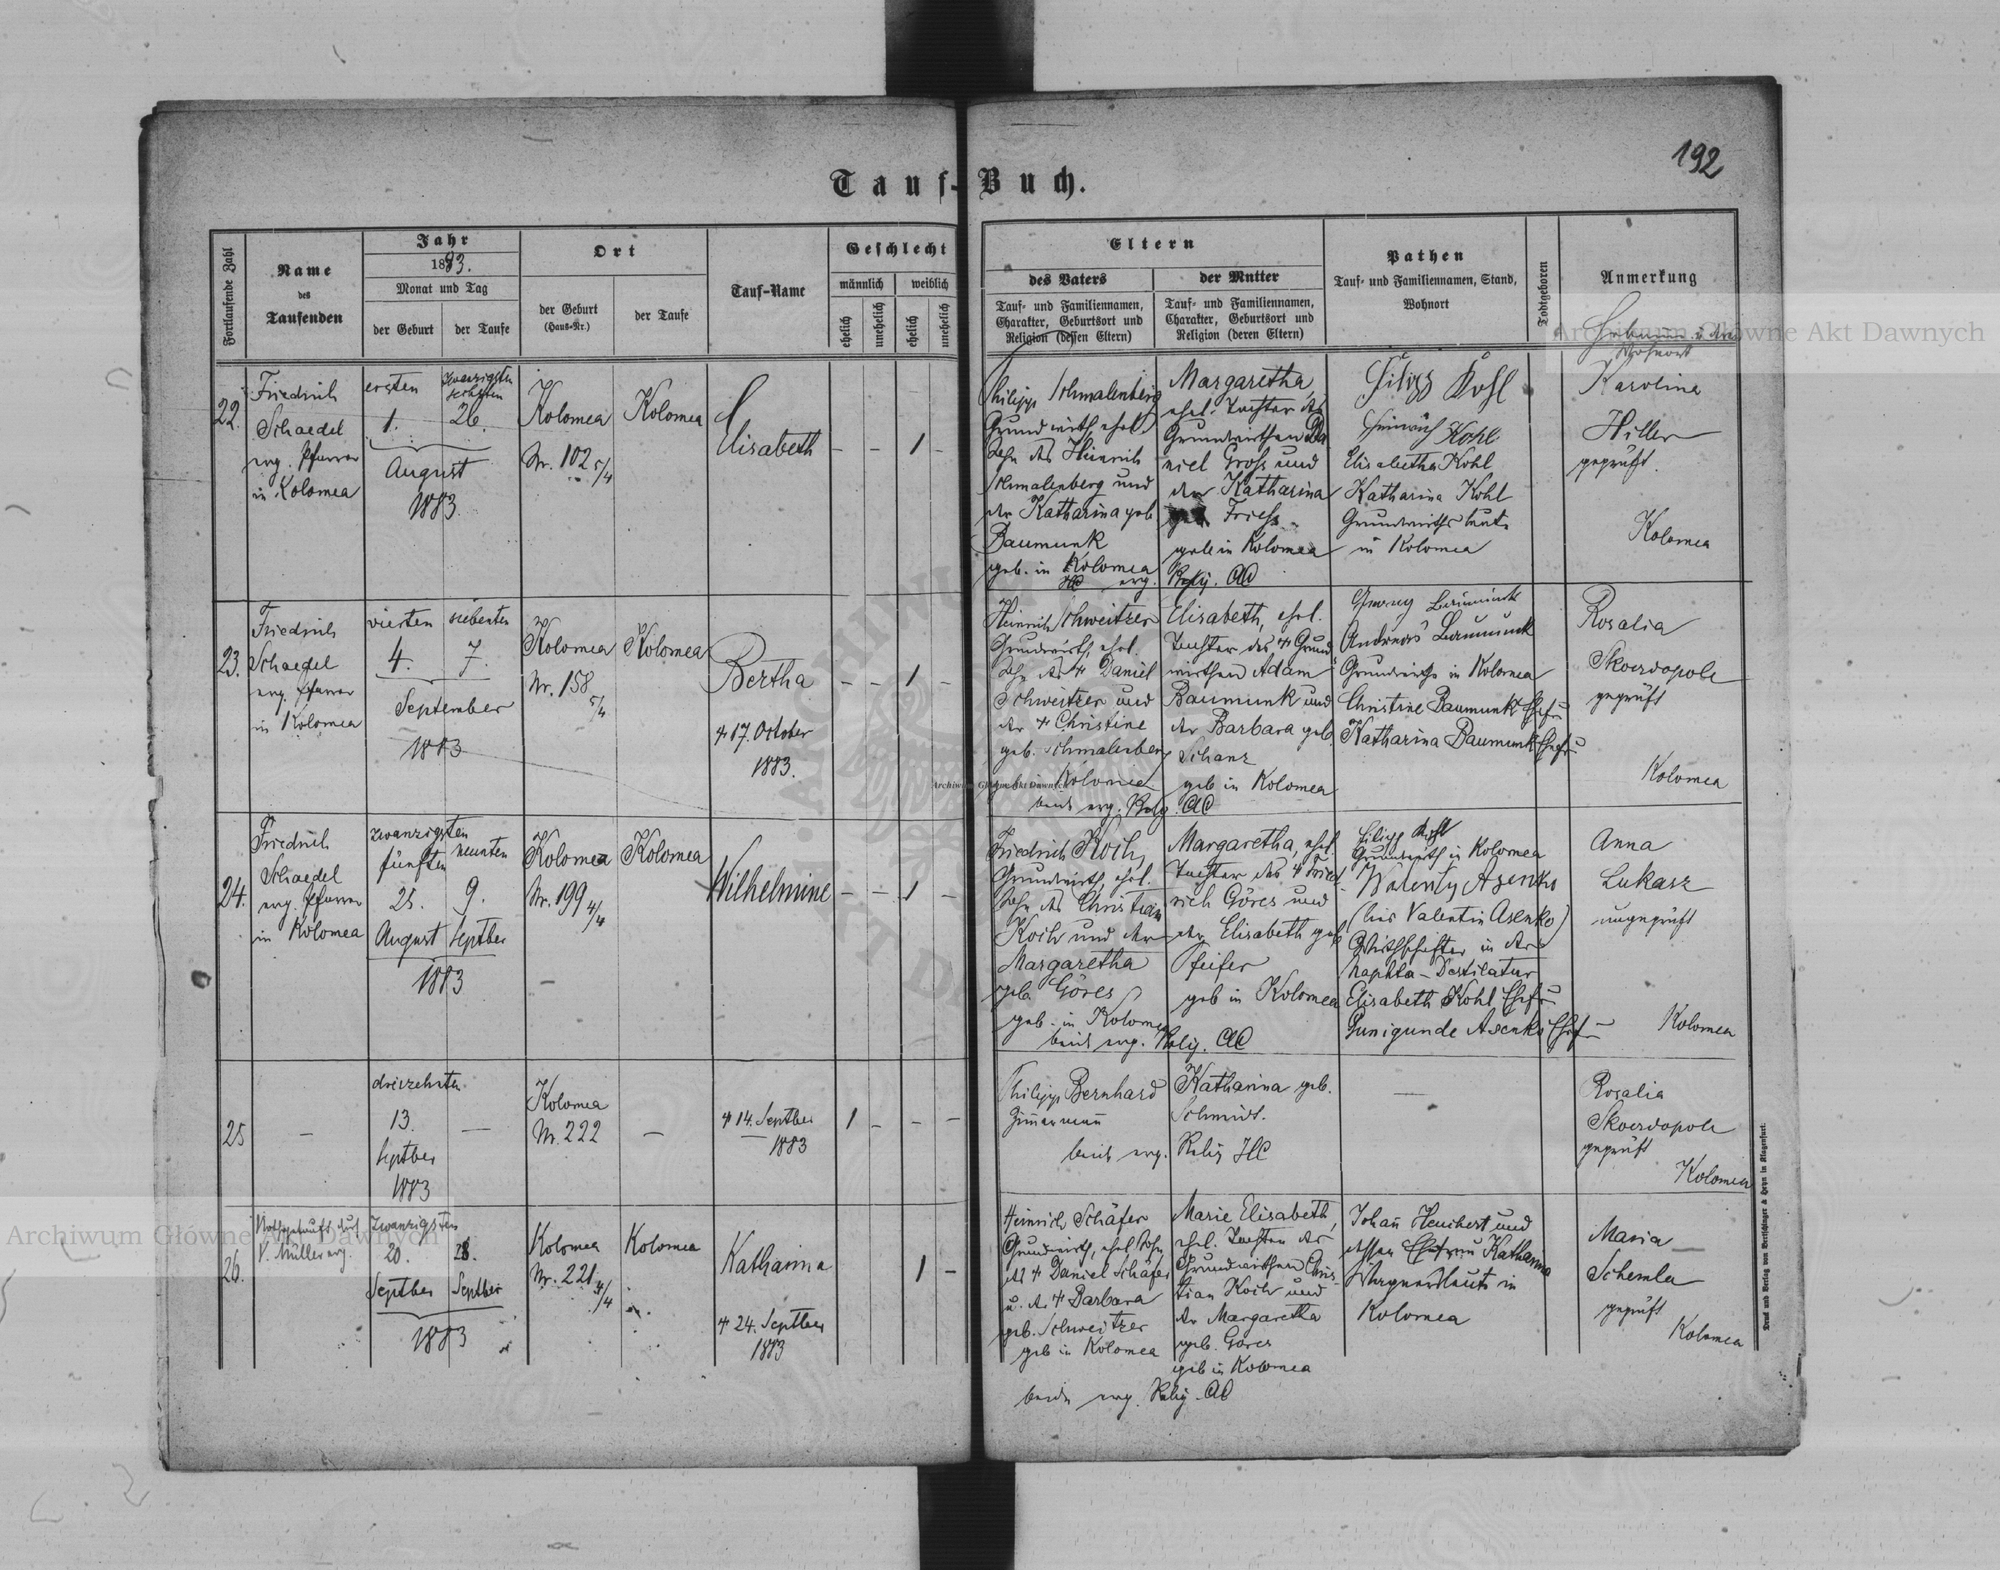 192
Tauf-Buch.
Fortlaufende Zahl
Name
des
Taufenden
Jahr
1883.
Monat und Tag
der Geburt
der Taufe
Ort
der Geburt
(Haus-Nr.)
der Taufe
Tauf-Name
Geschlecht
männlich
weiblich
ehelich
unehelich
ehelich
unehelich
Eltern
des Vaters
Tauf- und Familiennamen,
Charakter, Geburtsort und
Religion (dessen Eltern)
der Mutter
Tauf- und Familiennamen,
Charakter, Geburtsort und
Religion (deren Eltern)
Pathen
Tauf- und Familiennamen, Stand,
Wohnort
Todtgeboren
Anmerkung
Hebamme u. deren
Wohnort
22.
Friedrich
Schaedel
evg. Pfarrer
in Kolomea
ersten
1.
zwanzigsten
sechsten
26.
August
1883
Kolomea
Nr. 102 5/4
Kolomea
Elisabeth
- - 1 -
Philipp Schmalenberg
Grundwirth, ehel.
Sohn des Heinrich
Schmalenberg und
der Katharina geb
Baumunk
geb. in Kolomea
HC evg.
Margaretha,
ehel. Tochter des
Grundwirthen Da
niel Gross und
der Katharina
Friess
geb in Kolomea
Relig. AC
Filipp Kohl
Heinrich Kohl
Elisabetha Kohl
Katharina Kohl
Grundwirthsleute
in Kolomea
Karolina
Hiller
geprüft.
Kolomea
23.
Friedrich
Schaedel
evg. Pfarrer
in Kolomea
vierten
4.
siebenten
7.
September
1883
Kolomea
Nr. 158
5/4
Kolomea
Bertha
† 17. October
1883.
- - 1 -
Heinrich Schweitzer
Grundwirth, ehel.
Sohn des † Daniel
Schweitzer und
der † Christine
geb. Schmalenberg
geb in Kolomea
beide evg. Relig
Elisabeth, ehel.
Tochter des † Grund
wirthen Adam
Baumunk und
der Barbara geb.
Schanz
geb in Kolomea
AC
Georg Baumunk
Andreas Baumunk
Grundwirthe in Kolomea
Christine Baumunk Ehefr
Katharina Baumunk Ehefr
Rosalia
Skoerdopole
geprüft
Kolomea
24.
Friedrich
Schaedel
evg. Pfarrer
in Kolomea
zwanzigsten
fünften
25.
August
neunten
9.
Septber
1883
Kolomea
Nr. 199 4/4
-
Kolomea
Wilhelmine
- - 1 -
Friedrich Koch,
Grundwirth, ehel.
Sohn des Christian
Koch und der
Margaretha
geb. Göres
geb. in Kolomea
beide evg. Relig. AC
Margaretha, ehel.
Tochter des † Fried
rich Göres und
der Elisabeth geb
Pfeifer
geb in Kolomea
Filipp Kohl
Grundwirth in Kolomea
Walenty Asenko
(lies Valentin Asenko)
Wirthschafter in der
Naphta-Destilatur
Elisabeth Kohl Ehefr
Cunigunde Asenko Ehefr
Anna
Lukasz
ungeprüft
Kolomea
25
-
dreizehnten
13.
Septber
1883
-
Kolomea
Nr. 222
-
† 14. Septber
1883
1 - - -
Philipp Bernhard
Zimmermann
beide evg.
Katharina geb.
Schmidt.
Relig HC
-
Rosalia
Skoerdopole
geprüft
Kolomea
26.
Nothgetauft durch
V. Müller evg.
zwanzigsten
20.
Septber
28.
Septber
1883
Kolomea
Nr. 221 4/4
Kolomea
Katharina
† 24. Septber
1883
1 -
Heinrich Schäfer
Grundwirth, ehel. Sohn
des † Daniel Schäfer
u. der † Barbara
geb. Schweitzer
geb in Kolomea
beide evg. Relig. AC
Marie Elisabeth,
ehel. Tochter des
Grundwirthen Chris-
tian Koch und
der Margaretha
geb. Göres
geb in Kolomea
Johann Heuchert und
dessen Ehefrau Katharina
Wagnersleute in
Kolomea
Maria
Schemla
geprüft
Kolomea
Druck und Verlag von Bertschinger & Heyn in Klagenfurt.
Archiwum Główne Akt Dawnych
Archiwum Główne Akt Dawnych
Archiwum Główne Akt Dawnych